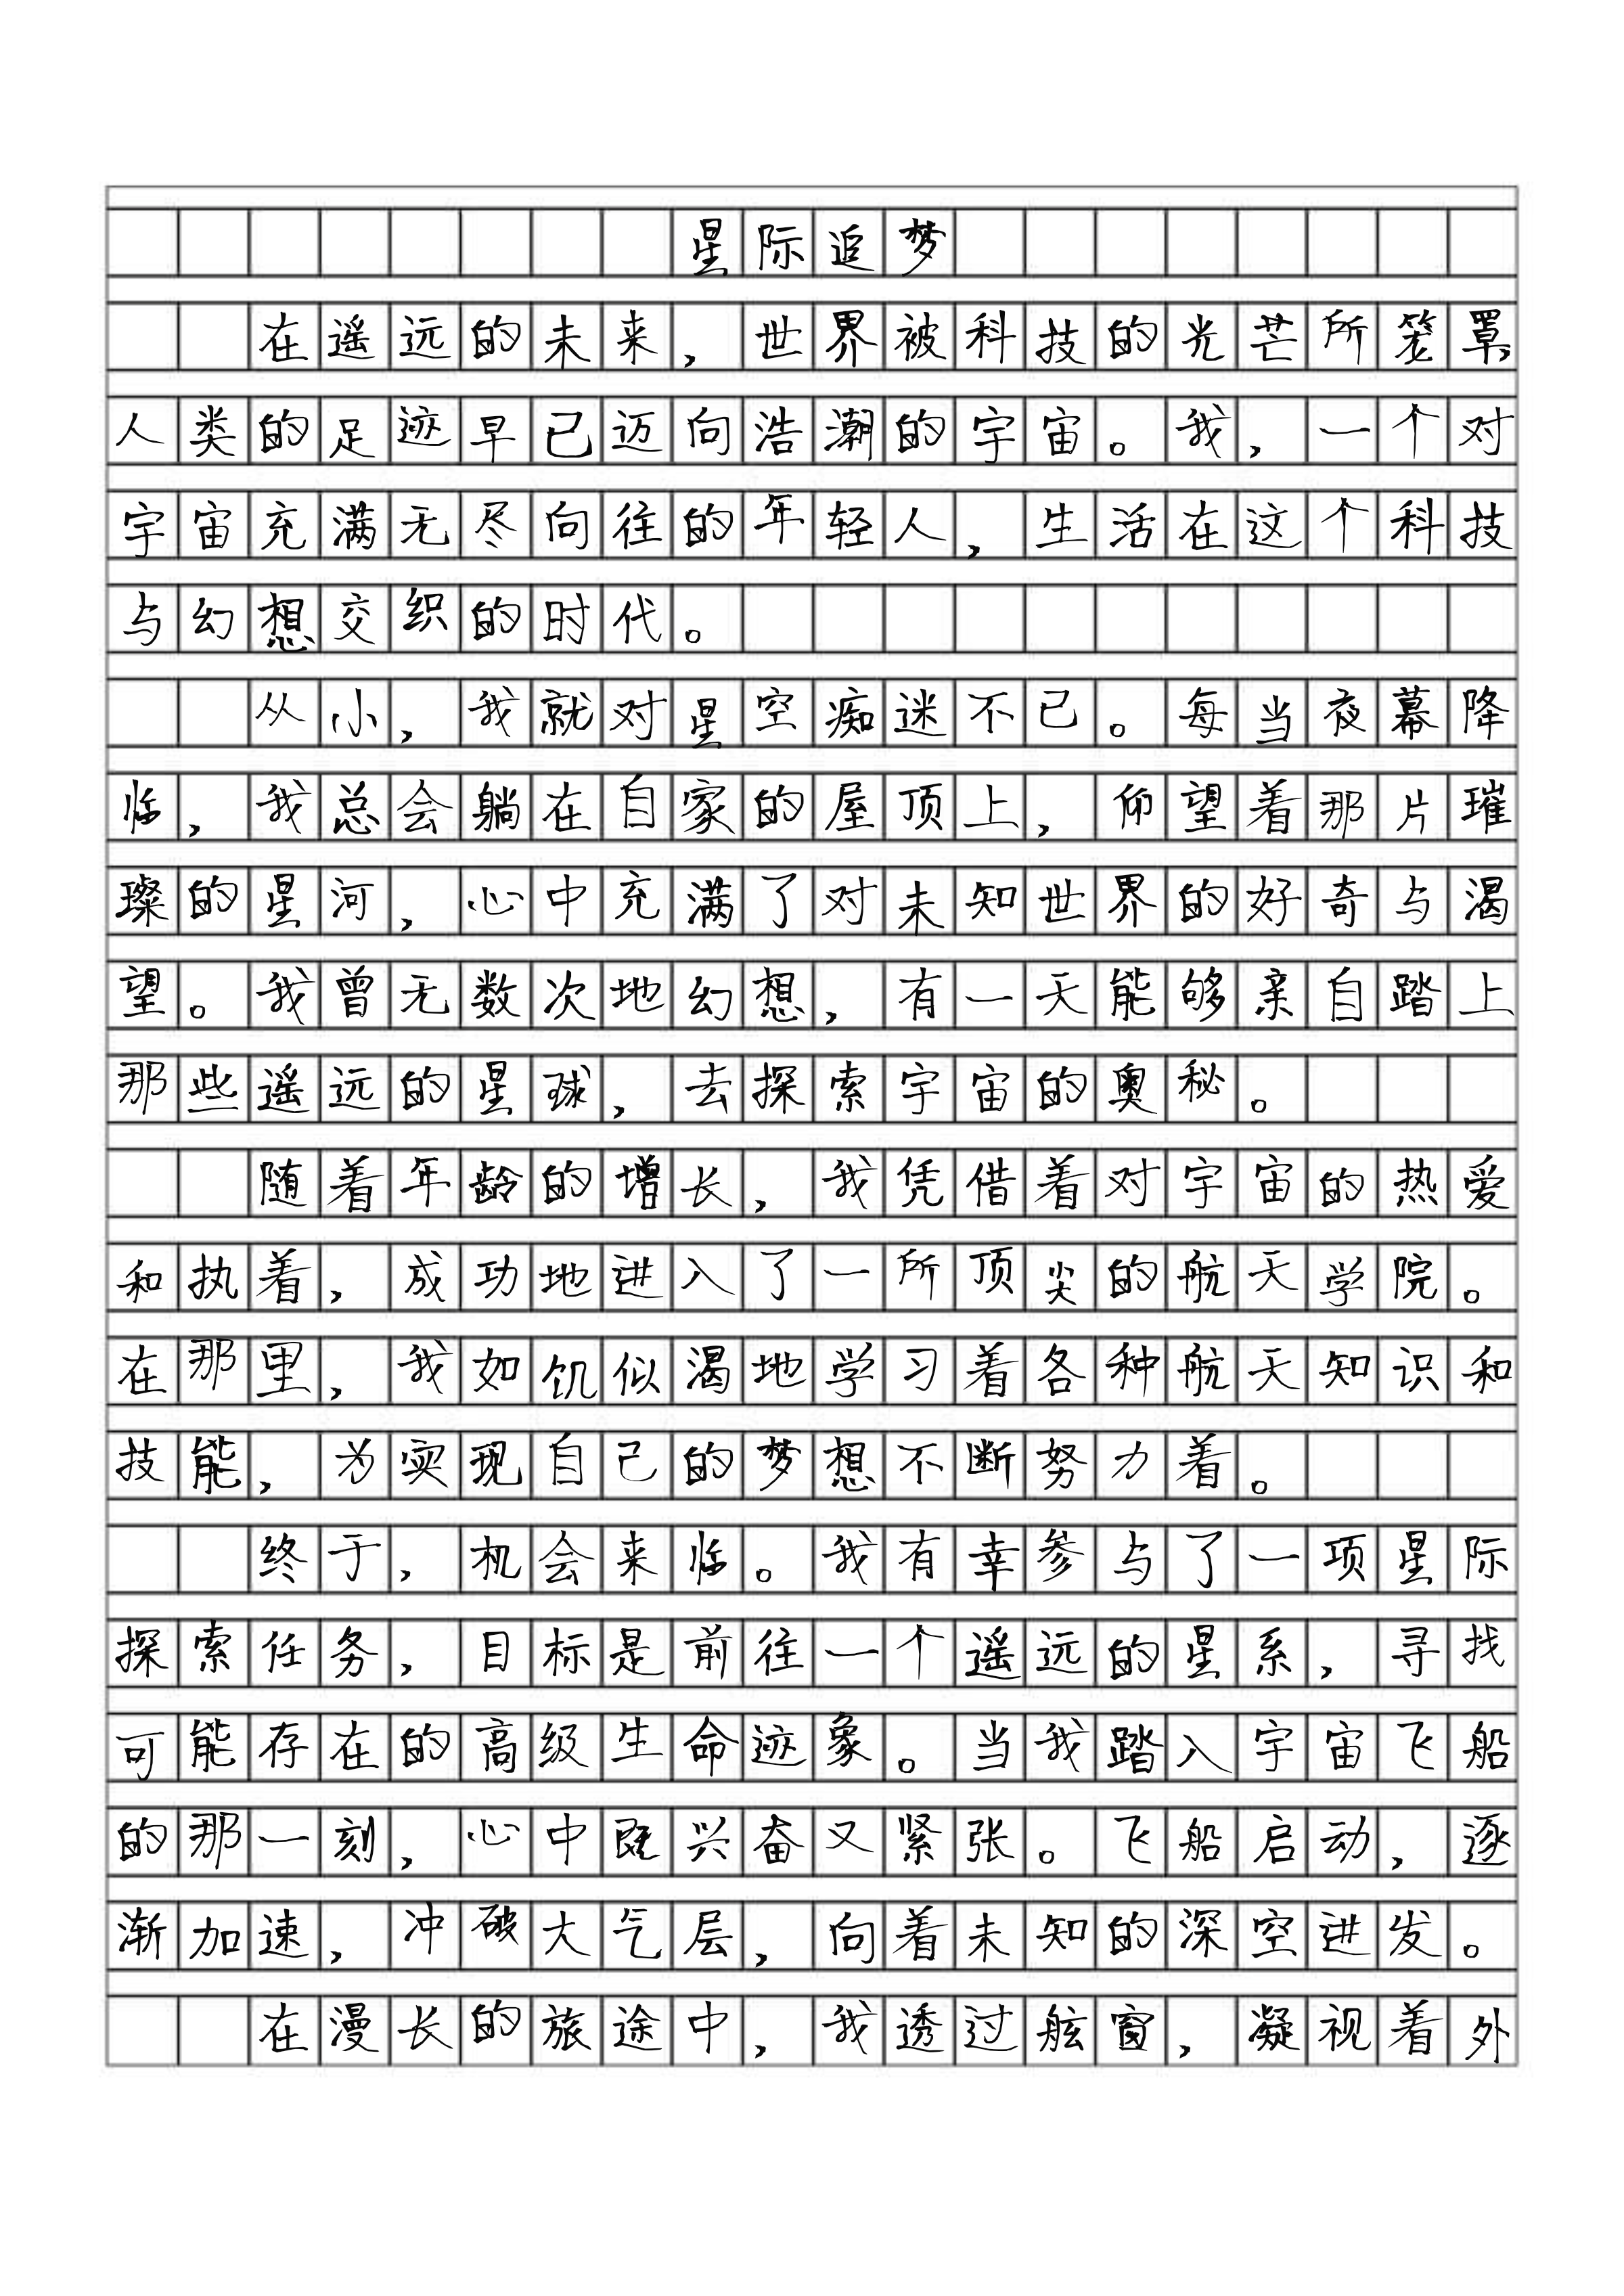 星际追梦
在遥远的未来，世界被科技的光芒所笼罩，
人类的足迹早已迈向浩潮的宇宙。我，一个对
宇宙充满无尽向往的年轻人，生活在这个科技
与幻想交织的时代。
从小，我就对星空痴迷不已。每当夜幕降
临，我总会躺在自家的屋顶上，仰望着那片璀
璨的星河，心中充满了对未知世界的好奇与渴
望。我曾无数次地幻想，有一天能够亲自踏上
那些遥远的星球，去探索宇宙的奥秘。
随着年龄的增长，我凭借着对宇宙的热爱
和执着，成功地进入了一所顶尖的航天学院。
在那里，我如饥似渴地学习着各种航天知识和
技能，为实现自己的梦想不断努力着。
终于，机会来临。我有幸参与了一项星际
探索任务，目标是前往一个遥远的星系，寻找
可能存在的高级生命迹象。当我踏入宇宙飞船
的那一刻，心中既兴奋又紧张。飞船启动，逐
渐加速，冲破大气层，向着未知的深空进发。
在漫长的旅途中，我透过舷窗，凝视着外